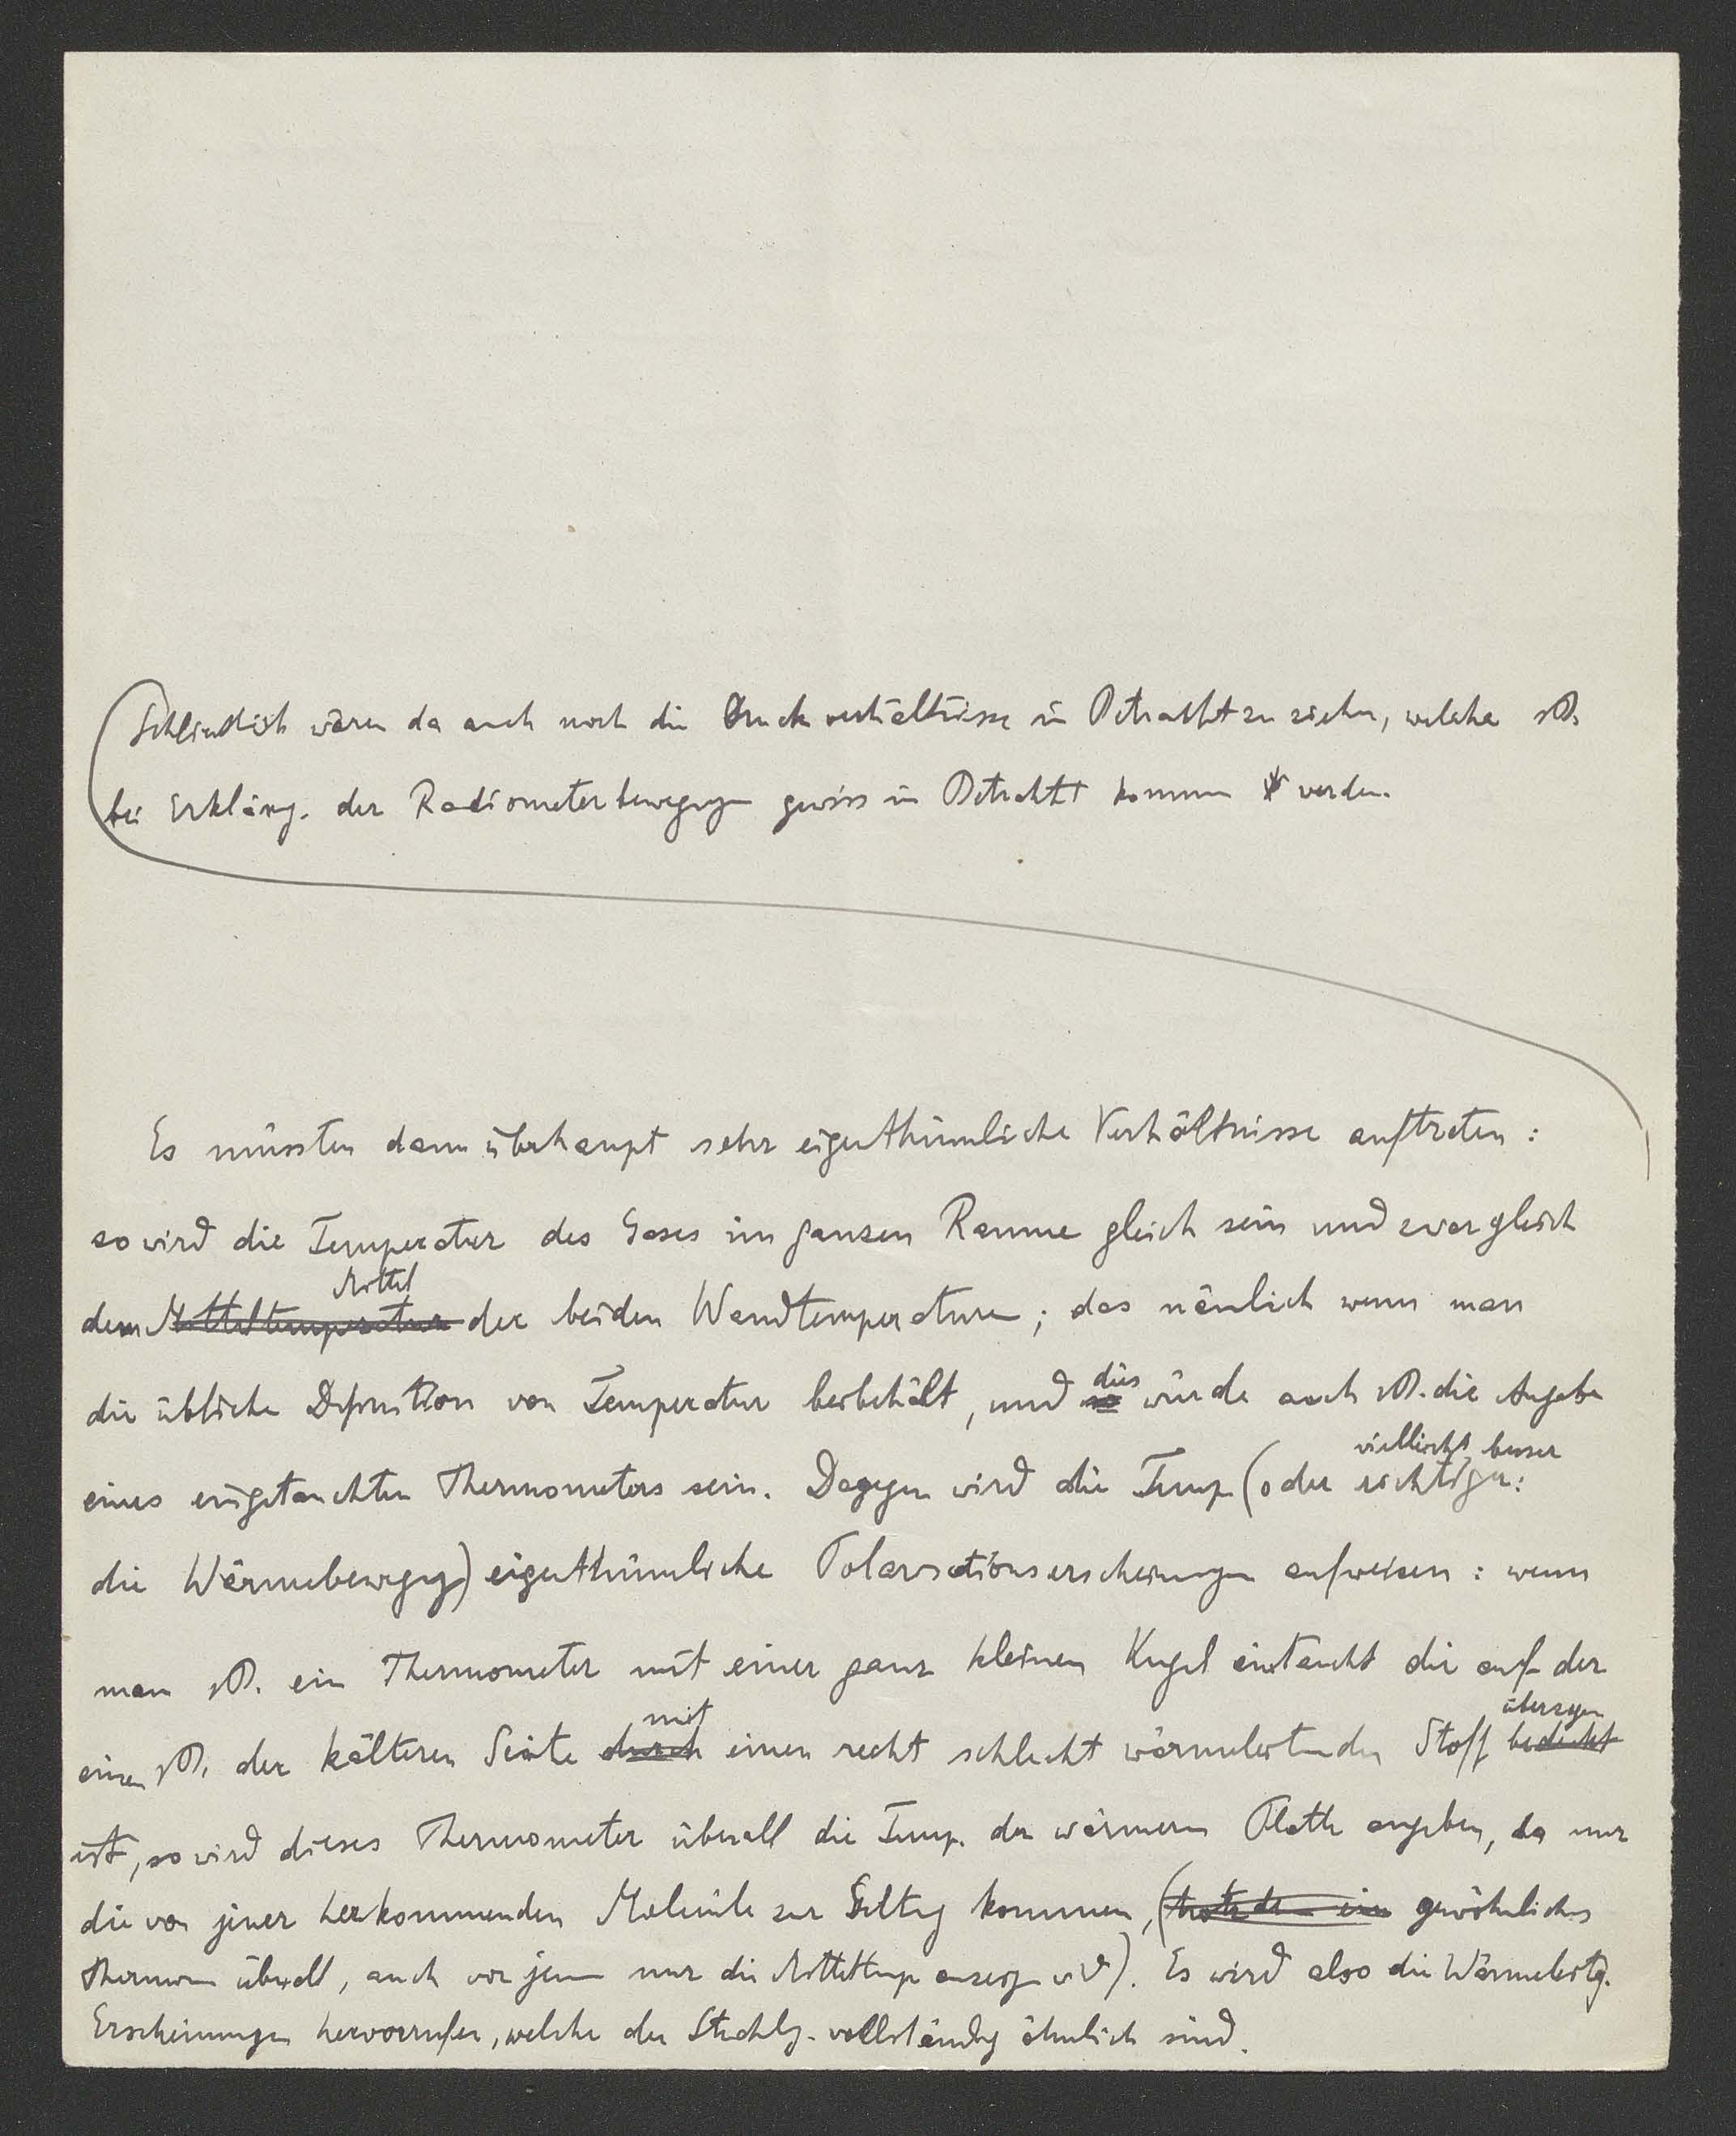 (Schliesslich wären da auch noch die Druckverhältnisse in Betracht zu ziehen, welche zB.
bei Erklärg. der Radiometerbewegungen gewiss in Betracht kommen werden.
Es müssten dann überhaupt sehr eigenthümliche Verhältnisse auftreten:
so wird die Temperatur des Gases im ganzen Raume gleich sein und zwar gleich
Mittel
dem Mitteltemperatur der beiden Wandtemperaturen; das nämlich wenn man
dies
die übliche Definition von Temperatur beibehält, und so würde auch zB. die Angabe
vielleicht besser
eines eingetauchten Thermometers sein. Dagegen wird die Temp. (oder richtiger:
die Wärmebewegg) eigenthümliche Polarisationserscheinungen aufweisen: wenn
man zB. ein Thermometer mit einer ganz kleinen Kugel eintaucht die auf der
mit überzogen
einen zB. der kälteren Seite durch einen recht schlecht wärmeleitenden Stoff bedeckt
ist, so wird dieses Thermometer überall die Temp. der wärmeren Platte angeben, da nur
die von jener herkommenden Moleküle zur Geltg kommen, (trotzdem ein gewöhnliches
Thermom überall, auch vor jener nur die Mitteltemp anzeigen wird). Es wird also die Wärmeleitg.
Erscheinungen hervorrufen, welche der Strahlg. vollständig ähnlich sind.